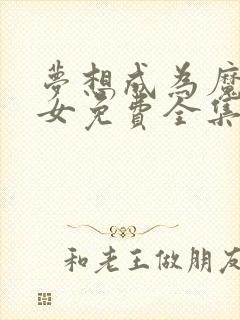 夢想成為魔
女免費全集
和老王做朋友